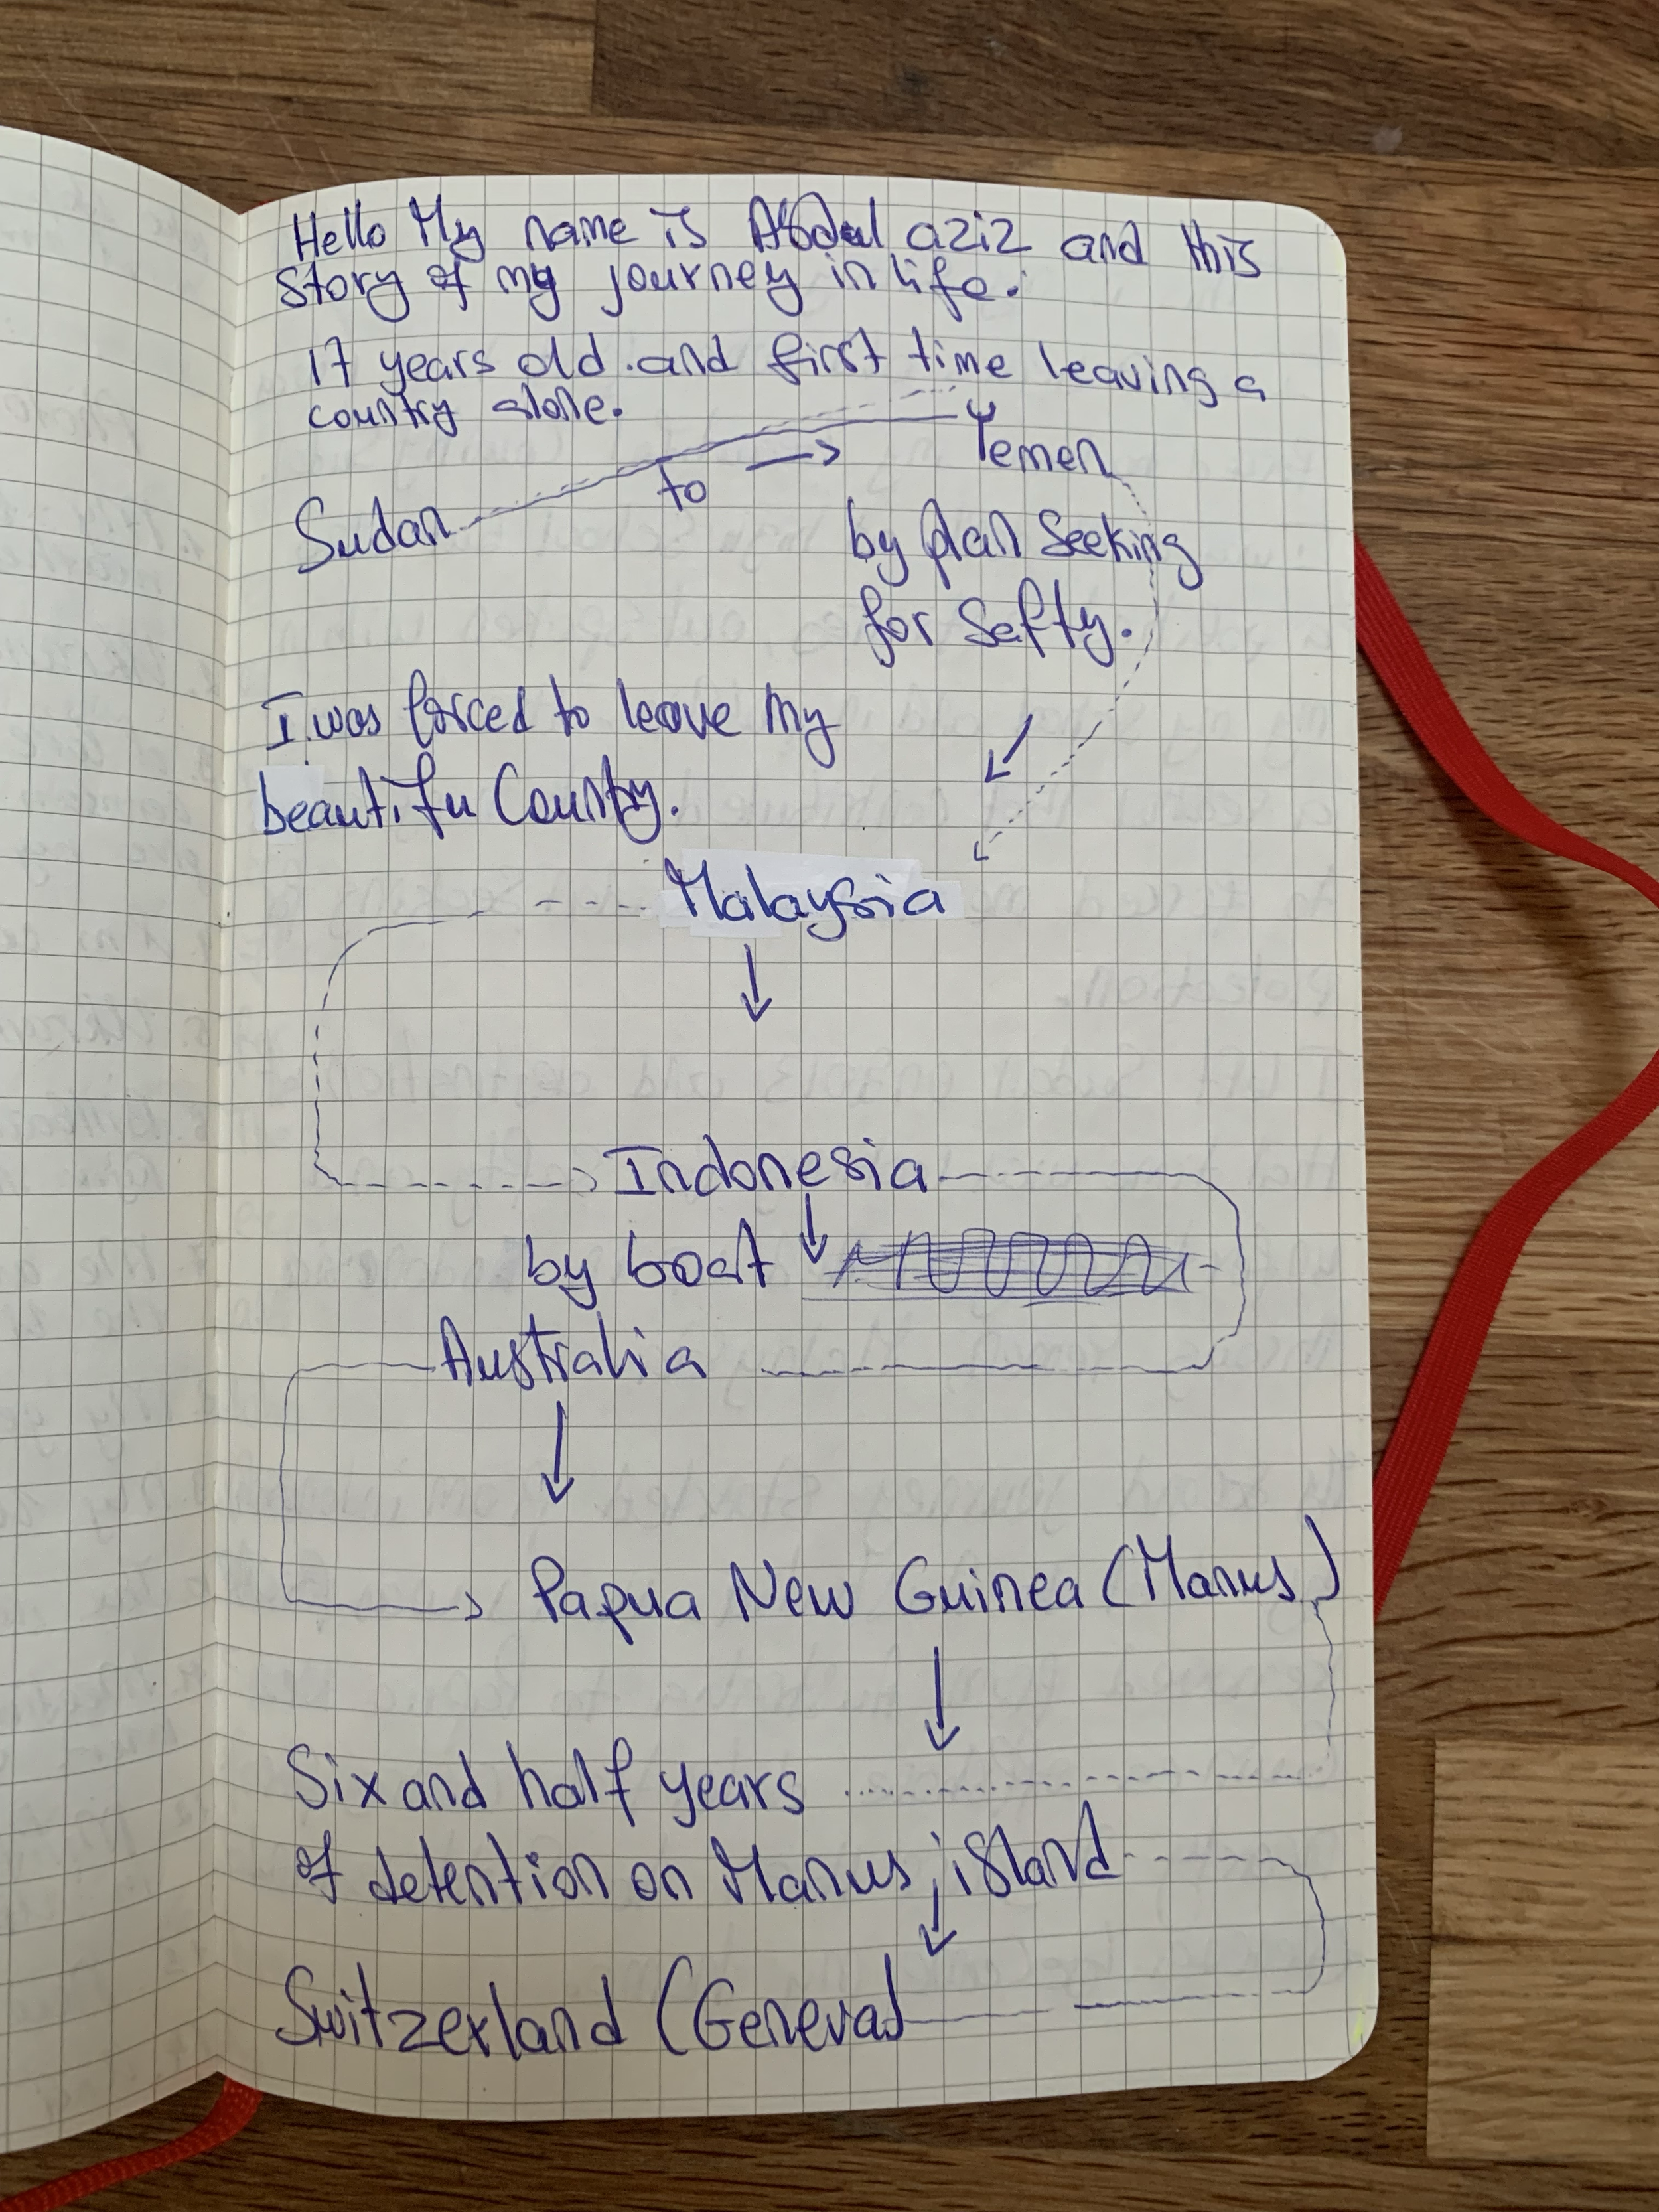 Hello My name is Abdul aziz and this
story of my journey in life.
17 years old .and first time leaving a
country alone.
Yemen
to
Sudan
by plan Seeking
for Safty.
I was forced to leave my
beautifu Country.
Malaysia
Indonesia
by boat
Australia
Papua New Guinea (Manus)
Six and half years
of detention on Manus island
Switzerland (Geneva)